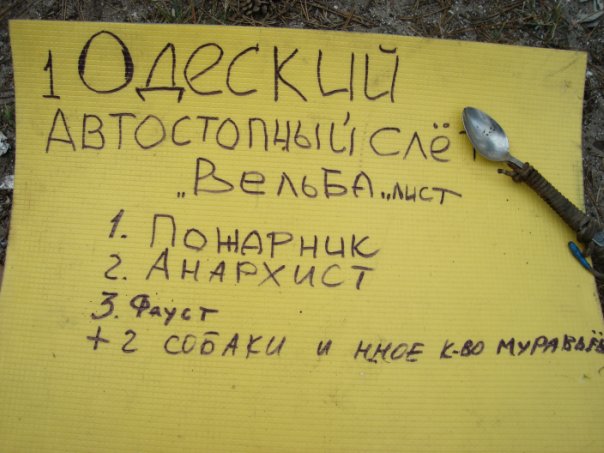 1 Одеский
Автостопный слёт
„Вельба„ лист
1. Пожарник
2. Анархист
3. Фауст
+ 2 собаки и нное к-во муравьёв